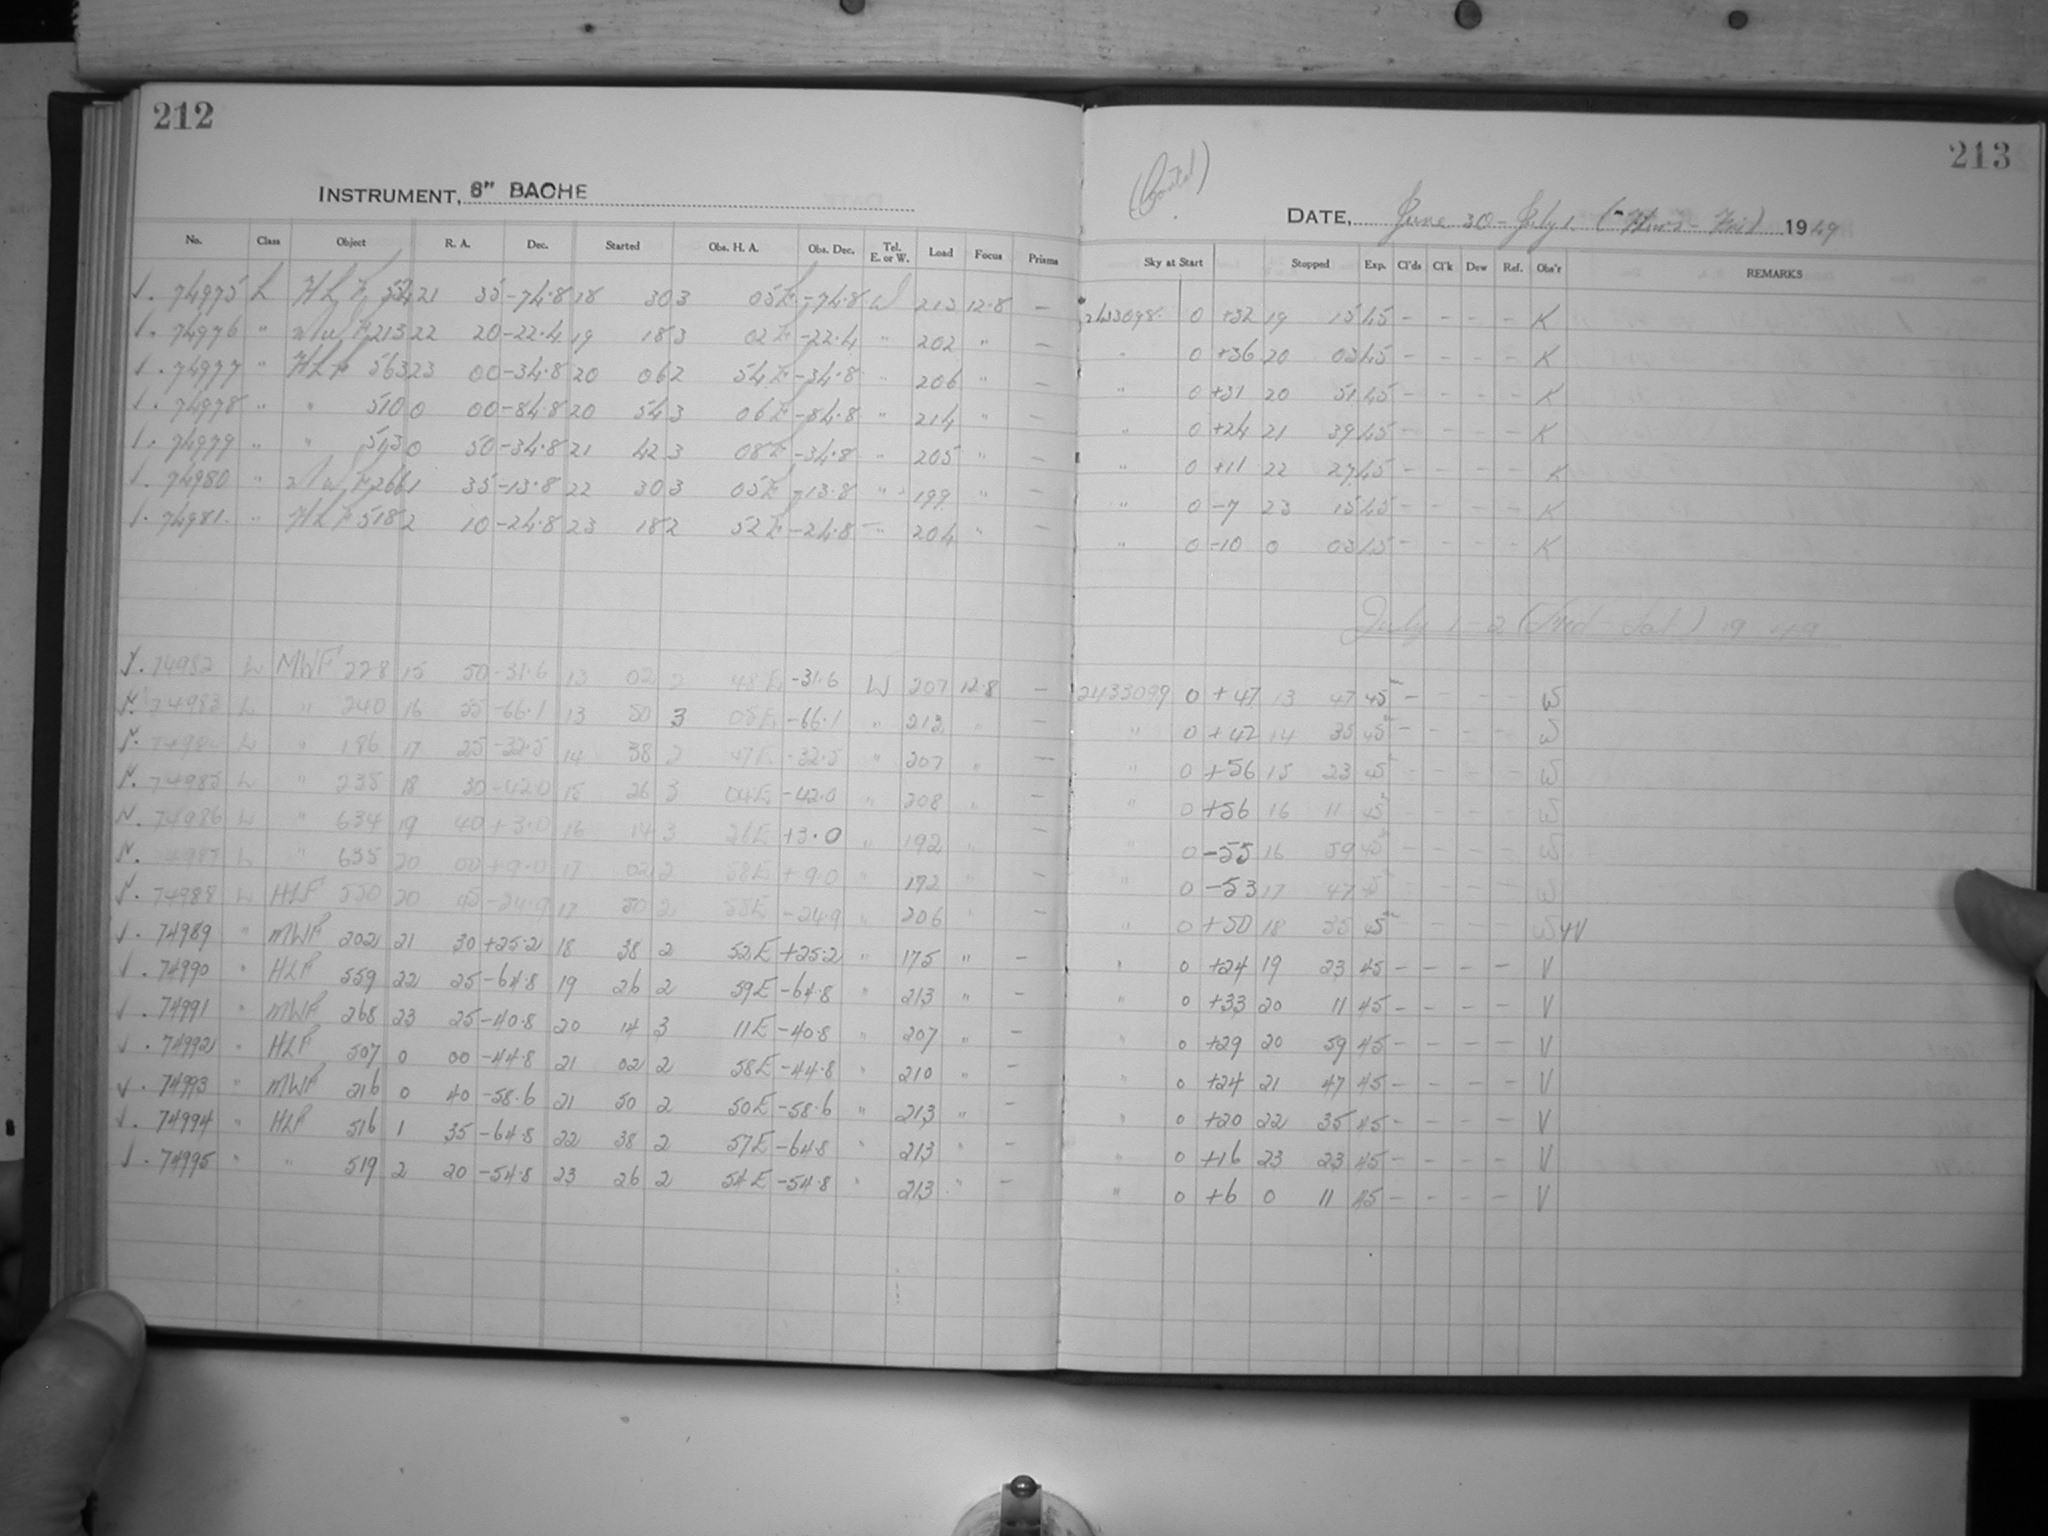 212
INSTRUMENT, 8" BACHE
No. Class Object R. A. Dec. Started Obs. H. A. Obs. Dec. Tel. E. or W. Load Focus Prisms
74975 L HLF 21 35 -74.8 18 30 3 05E -74.8 W 213 12.8 —
74976 " 213 22 20 -22.4 19 18 3 02E -22.4 " 202 " —
74977 " HLF 563 23 00 -34.8 20 06 2 54E -34.8 " 206 " —
74978 " " 510 0 00 -84.8 20 54 3 06E -84.8 " 214 " —
74979 " " 543 0 50 -34.8 21 42 3 08E -34.8 " 205 " —
74980 " 266 1 35 -13.8 22 30 3 05E -13.8 " 199 " —
74981 " HLF 518 2 10 -24.8 23 18 2 52E -24.8 " 204 " —
74982 L MWF 228 15 50 -31.6 13 02 2 48E -31.6 W 207 12.8 —
74983 L " 240 16 55 -66.1 13 50 3 05E -66.1 " 213 " —
74984 L " 186 17 25 -32.5 14 38 2 47E -32.5 " 207 " —
74985 L " 235 18 30 -42.0 15 26 3 04E -42.0 " 208 " —
74986 L " 634 19 40 +3.0 16 14 3 26E +3.0 " 192 " —
74987 L " 635 20 00 +9.0 17 02 2 58E +9.0 " 192 "
74988 L HLF 550 20 45 -24.9 17 50 2 55E -24.9 " 206 " —
74989 " MWF 202 21 30 +25.2 18 38 2 52E +25.2 " 175 " —
74990 " HLF 559 22 25 -64.8 19 26 2 59E -64.8 " 213 " —
74991 " MWF 268 23 25 -40.8 20 14 3 11E -40.8 " 207 " —
74992 " HLF 507 0 00 -44.8 21 02 2 58E -44.8 " 210 " —
74993 " MWF 216 0 40 -58.6 21 50 2 50E -58.6 " 213 " —
74994 " HLF 516 1 35 -64.8 22 38 2 57E -64.8 " 213 " —
74995 " " 519 2 20 -54.8 23 26 2 54E -54.8 " 213 " —
213
(Contd)
DATE, June 30 - July 1 (Thurs - Fri) 1949
Sky at Start Stopped Exp. Cl'ds Cl'k Dew Ref. Obs'r REMARKS
2433098 0 +32 19 15 45 — — — — K
" 0 +36 20 03 45 — — — — K
" 0 +31 20 51 45 — — — — K
" 0 +24 21 39 45 — — — — K
" 0 +11 22 27 45 — — — — K
" 0 -7 23 15 45 — — — — K
" 0 -10 0 03 45 — — — — K
July 1-2 (Frid - Sat) 1949
2433099 0 +47 13 47 45 — — — — W
" 0 +42 14 35 45 — — — — W
" 0 +56 15 23 45 — — — — W
" 0 +56 16 11 45 — — — — W
" 0 -55 16 59 45 — — — — W
" 0 -53 17 47 45 — — — — W
" 0 +50 18 35 45 — — — — W+V
" 0 +24 19 23 45 — — — — V
" 0 +33 20 11 45 — — — — V
" 0 +29 20 59 45 — — — — V
" 0 +24 21 47 45 — — — — V
" 0 +20 22 35 45 — — — — V
" 0 +16 23 23 45 — — — — V
" 0 +6 0 11 45 — — — — V